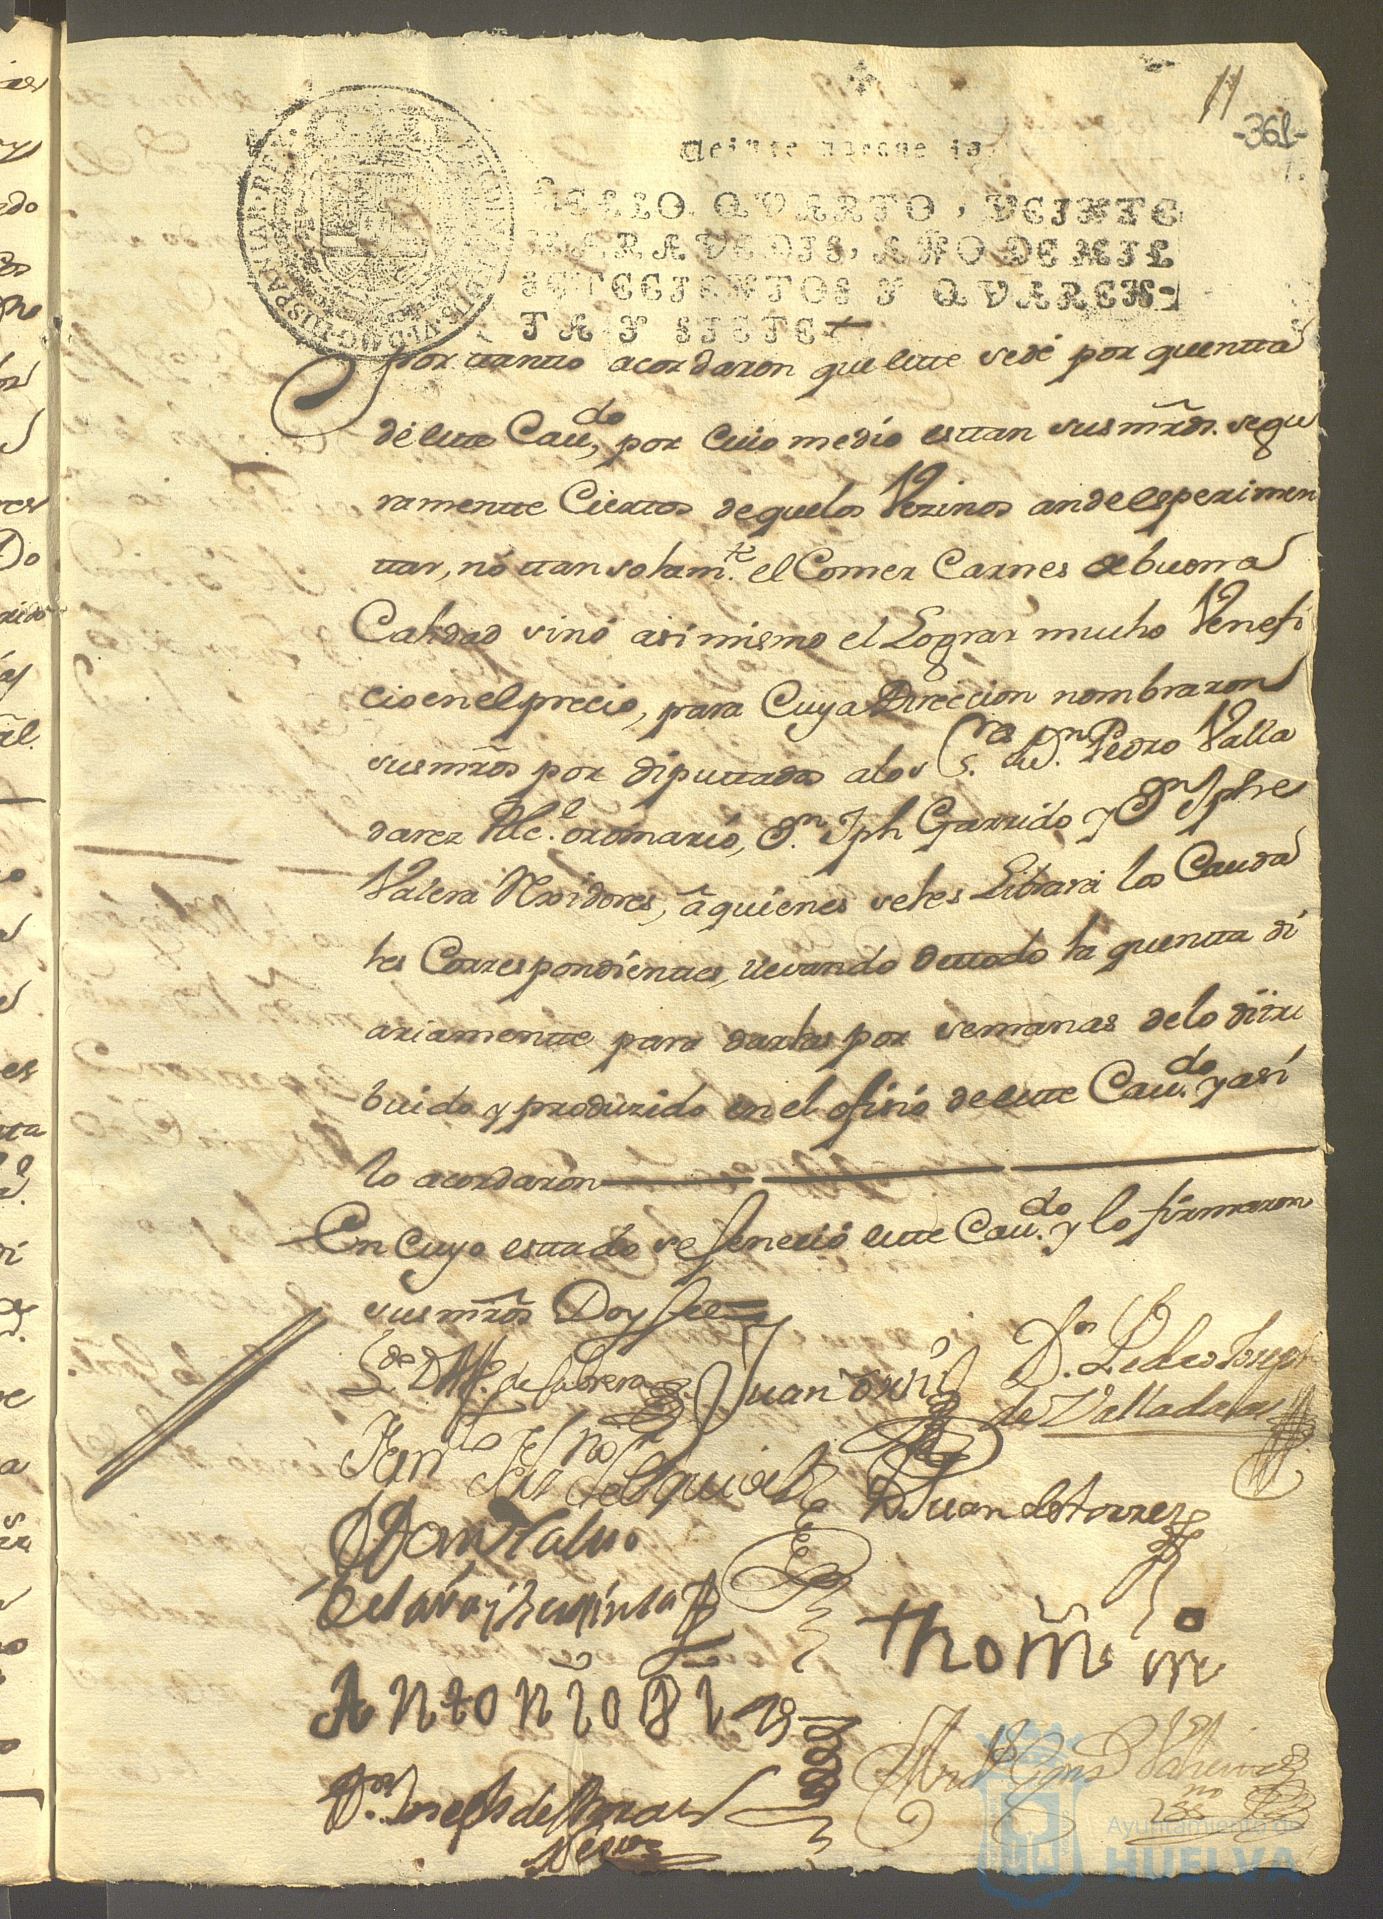 11
-361-
Veinte marauedis
SELLO QVARTO, VEINTE
MARAVEDIS, AÑO DE MIL
SETECIENTOS Y QVAREN-
TA Y SIETE
por ttanto acordaron que este se dé por quentta
de este Cau.do, por cuio medio esttan sus mrds. segu
ramentte Ciertos de que los Vezinos an de esperimen
ttar, nó ttan solam.te el Comer Carnes de buena
Calidad sinó asi mismo el Lograr mucho Venefi
cio en el precio, para Cuya Direccion nombraron
sus mrds por diputtados a los S.res D.n Pedro Valla
darez Alc.l ordinario, D.n Jph Garrido y D.n Jphes
Valera Rexidores, á quienes se les Librará los Cauda
les Correspondienttes, llevando de ttodo la quentta di
ariamentte para darlas por semanas de lo distri
buido y produzido en el ofisio de este Cau.do y así
lo acordaron
En cuyo esttado se feneció este Cau.do y lo firmaron
sus mrds Doy fee=
de Cabrera Juan Ortiz D.n Pedro Joseph
de Valladares
de Esquivel D Juan de torres
Antonio
D.n Joseph de
Ayuntamiento de
HUELVA